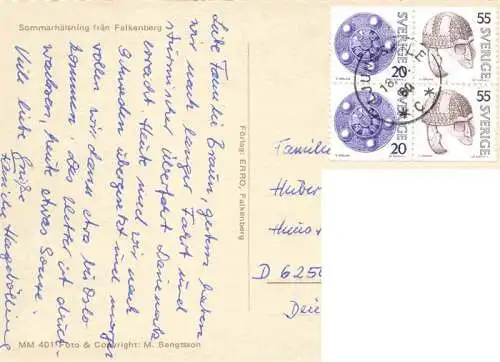 Sommarhälsning från Falkenberg
Liebe Familie Braun, gestern haben
wir nach langer Fahrt und
stürmischer Überfahrt Dänemark
erreicht. Heute sind wir nach
Schweden übergesetzt und morgen
wollen wir dann etwa bis Oslo
kommen. Das Wetter ist durch-
wachsen, heute etwas Sonne.
Viele liebe Grüße
Familie
Förlag: ERRO, Falkenberg
MM 401 Foto & Copyright: M. Bengtsson
SVERIGE 20
SVERIGE 55
SVERIGE 20
SVERIGE 55
18
80
* C *
Familie
Huber
Haus
D 6250